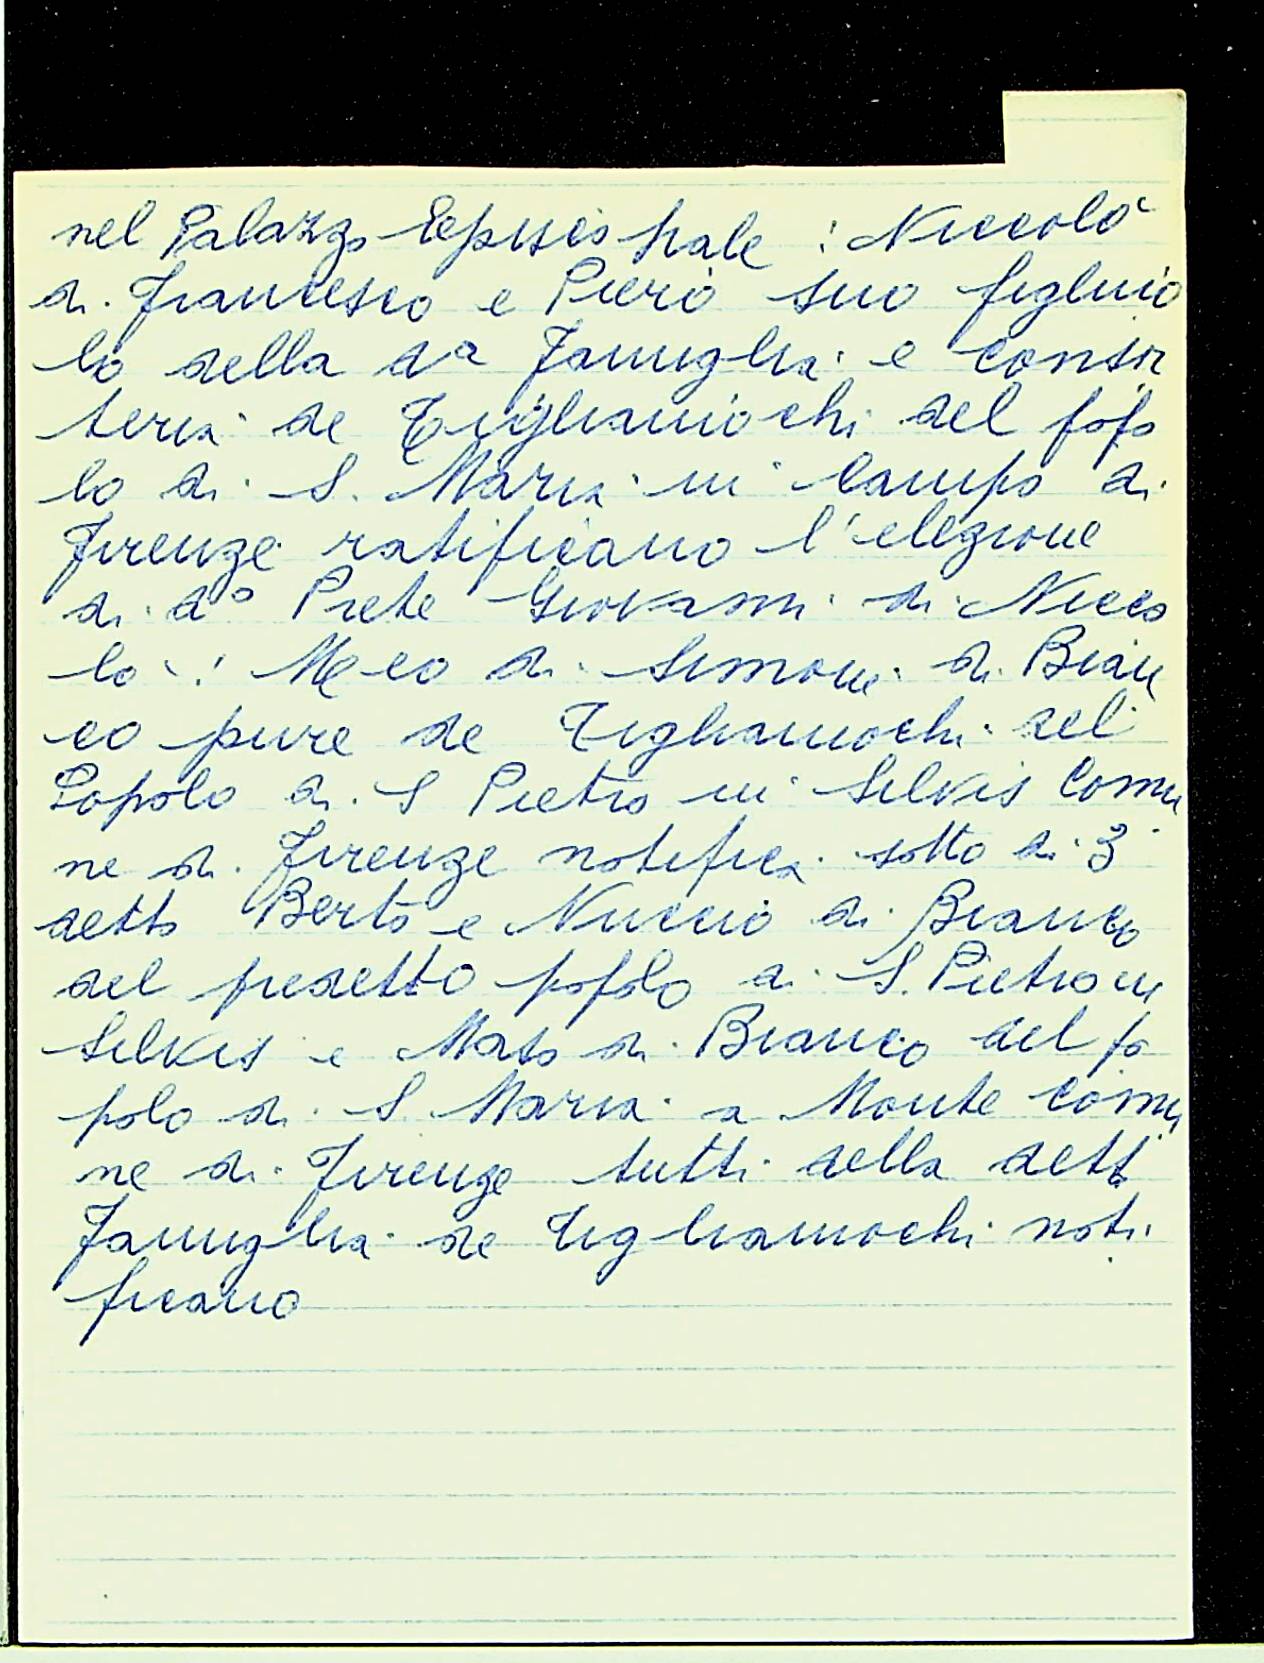 nel Palazzo Episcopale : Niccolò
di Francesco e Piero suo figluio
lo della da Famiglia e consor
teria de Tigliamochi del popo
lo di S. Maria in Campo di
Firenze ratificano l'elezione
di do Prete Giovanni di Nicco
lò : Meo di Simone di Bian
co pure de Tigliamochi del
Popolo di S Pietro in Silvis Comu
ne di Firenze notifica sotto di 3
detto Berto e Nuccio di Bianco
del predetto popolo di S. Pietro in
Silvis e Maso di Bianco del po
polo di S Maria a Monte comu
ne di Firenze tutti della detta
Famiglia de Tigliamochi noti
ficano